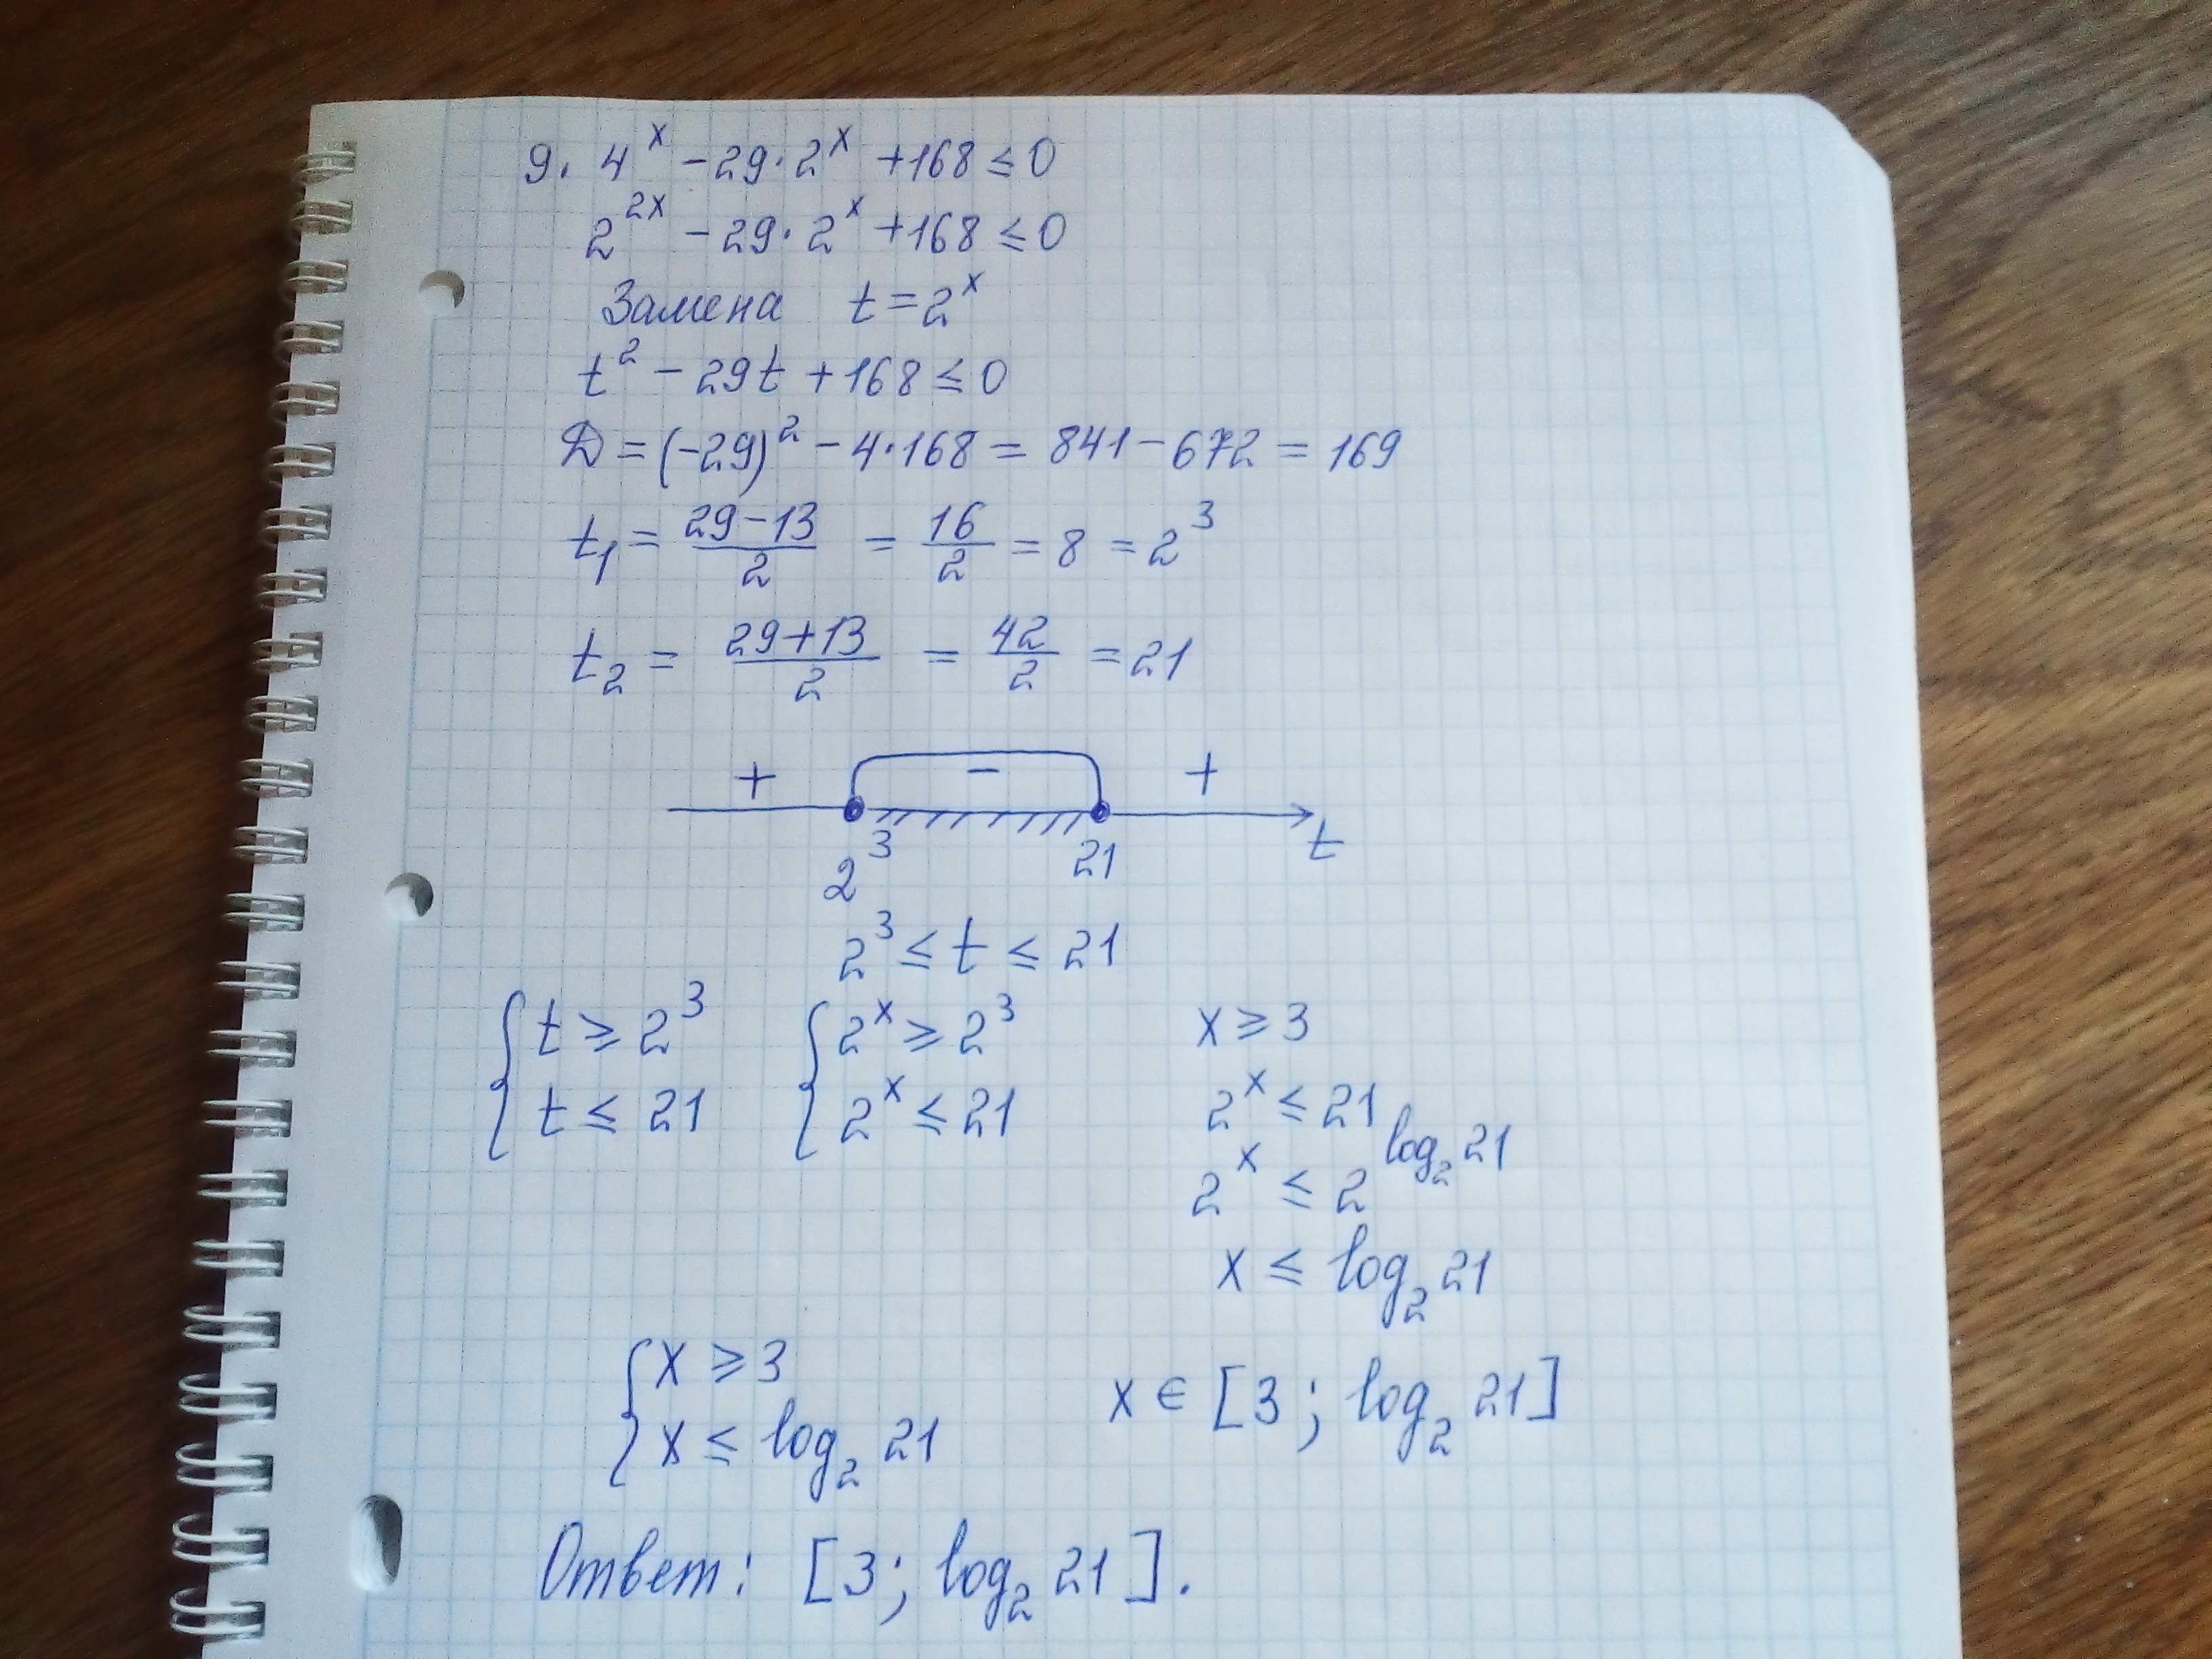 9. 4^x - 29·2^x + 168 ≤ 0
2^{2x} - 29·2^x + 168 ≤ 0
Замена t = 2^x
t^2 - 29t + 168 ≤ 0
D = (-29)^2 - 4·168 = 841 - 672 = 169
t_1 = \frac{29-13}{2} = \frac{16}{2} = 8 = 2^3
t_2 = \frac{29+13}{2} = \frac{42}{2} = 21
+ - +
2^3 21 t
2^3 ≤ t ≤ 21
{ t ≥ 2^3 { 2^x ≥ 2^3 x ≥ 3
t ≤ 21 2^x ≤ 21 2^x ≤ 21
2^x ≤ 2^{log_2 21}
x ≤ log_2 21
{ x ≥ 3
x ≤ log_2 21 x ∈ [3; log_2 21]
Ответ: [3; log_2 21].